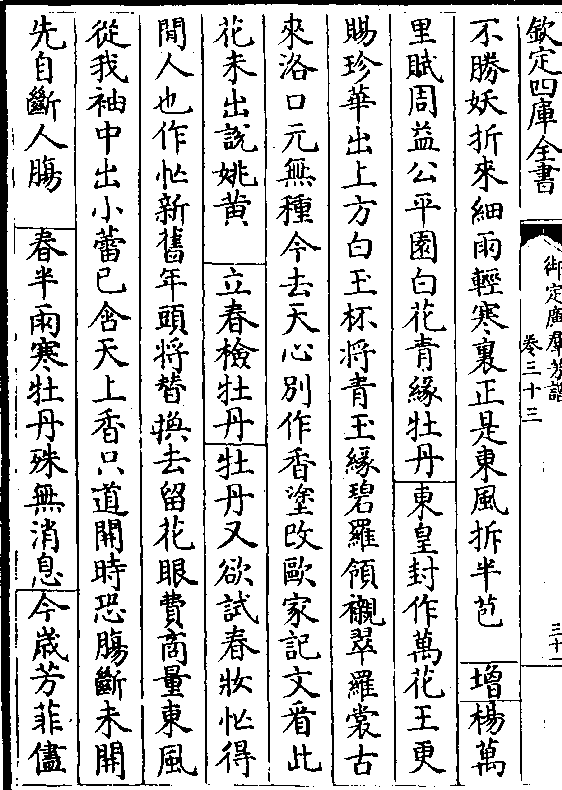 欽定四庫全書
御定廣羣芳譜
卷三十三
三十一
不勝妖折來細雨輕寒裏正是東風拆半苞 增楊萬
里賦周益公平園白花青緣牡丹東皇封作萬花王更
賜珍華出上方白玉杯將青玉緣碧羅領襯翠羅裳古
來洛口元無種今去天心別作香塗改歐家記文看此
花未出説姚黄 立春檢牡丹牡丹又欲試春妝忙得
閒人也作忙新舊年頭將替換去留花眼費商量東風
從我袖中出小蕾已含天上香只道開時恐腸斷未開
先自斷人腸 春半雨寒牡丹殊無消息今歳芳菲儘